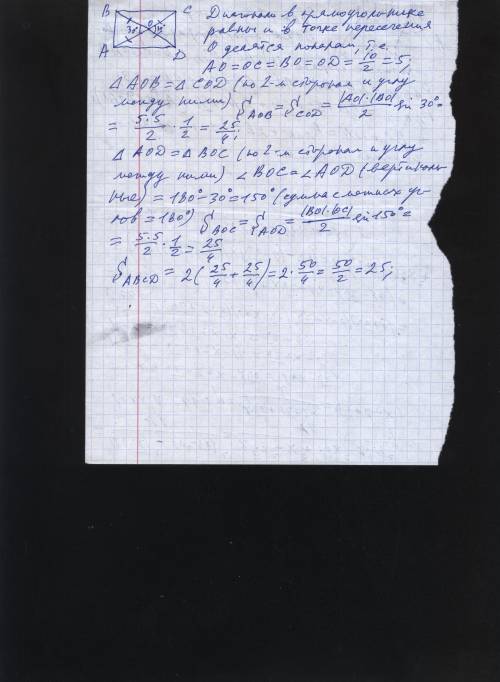 B C
O
30° 30°
A D
Диагонали в прямоугольнике
равны и в точке пересечения
O делятся пополам, т.е.
AO=OC=BO=OD=10/2=5;
△AOB=△COD (по 2-м сторонам и углу
между ними) S_AOB=S_COD=|AO|·|BO|/2 sin 30°=
=5·5/2·1/2=25/4;
△AOD=△BOC (по 2-м сторонам и углу
между ними) ∠BOC=∠AOD (вертикаль-
ные)=180°-30°=150° (сумма смежных уг-
лов=180°) S_BOC=S_AOD=|BO|·|OC|/2 sin 150°=
=5·5/2·1/2=25/4
S_ABCD=2(25/4+25/4)=2·50/4=50/2=25;